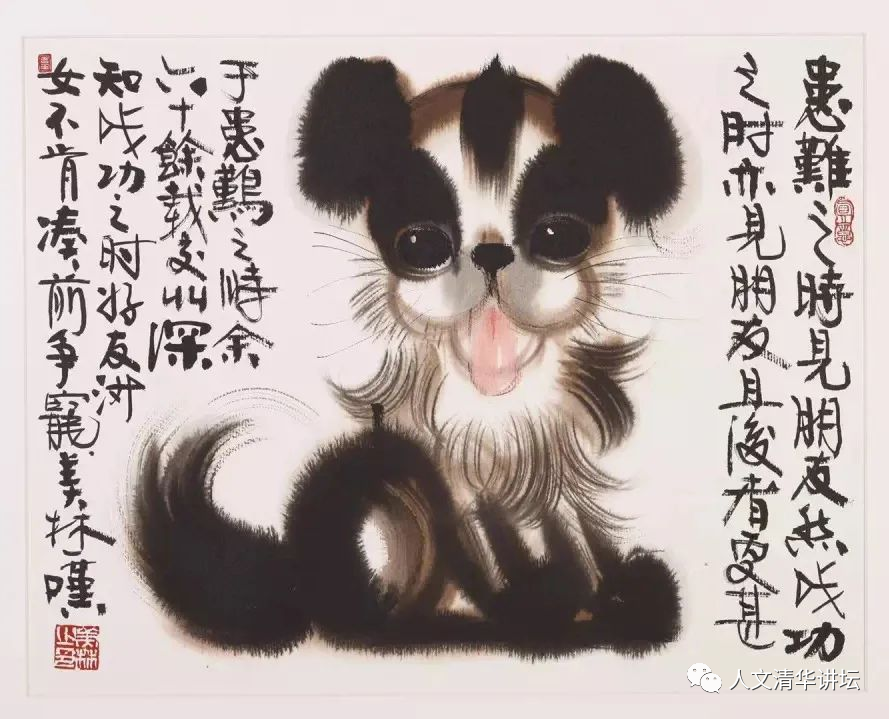 患難之時見朋友然成功
之时亦見朋友且後者更甚
于患難之時余
六十餘載交深
知成功之时好友
女不肯凑前争寵美林嘆
人文清华讲坛